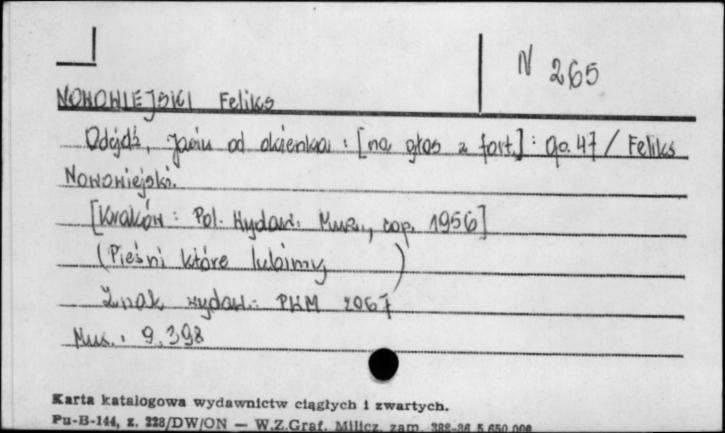 N 265
NOWOWIEJSKI Feliks
Odejdź, Jasiu od okienka : [na głos z fort.] : op. 47 / Feliks
Nowowiejski.
[Kraków : Pol. Wydaw. Muz., cop. 1956]
(Pieśni które lubimy)
Znak wydaw.: PWM 2067
Mus. : 9.398
Karta katalogowa wydawnictw ciągłych i zwartych.
Pu-B-144, z. 228/DW/ON — W.Z.Graf. Milicz, zam. 388-86 5 650 000